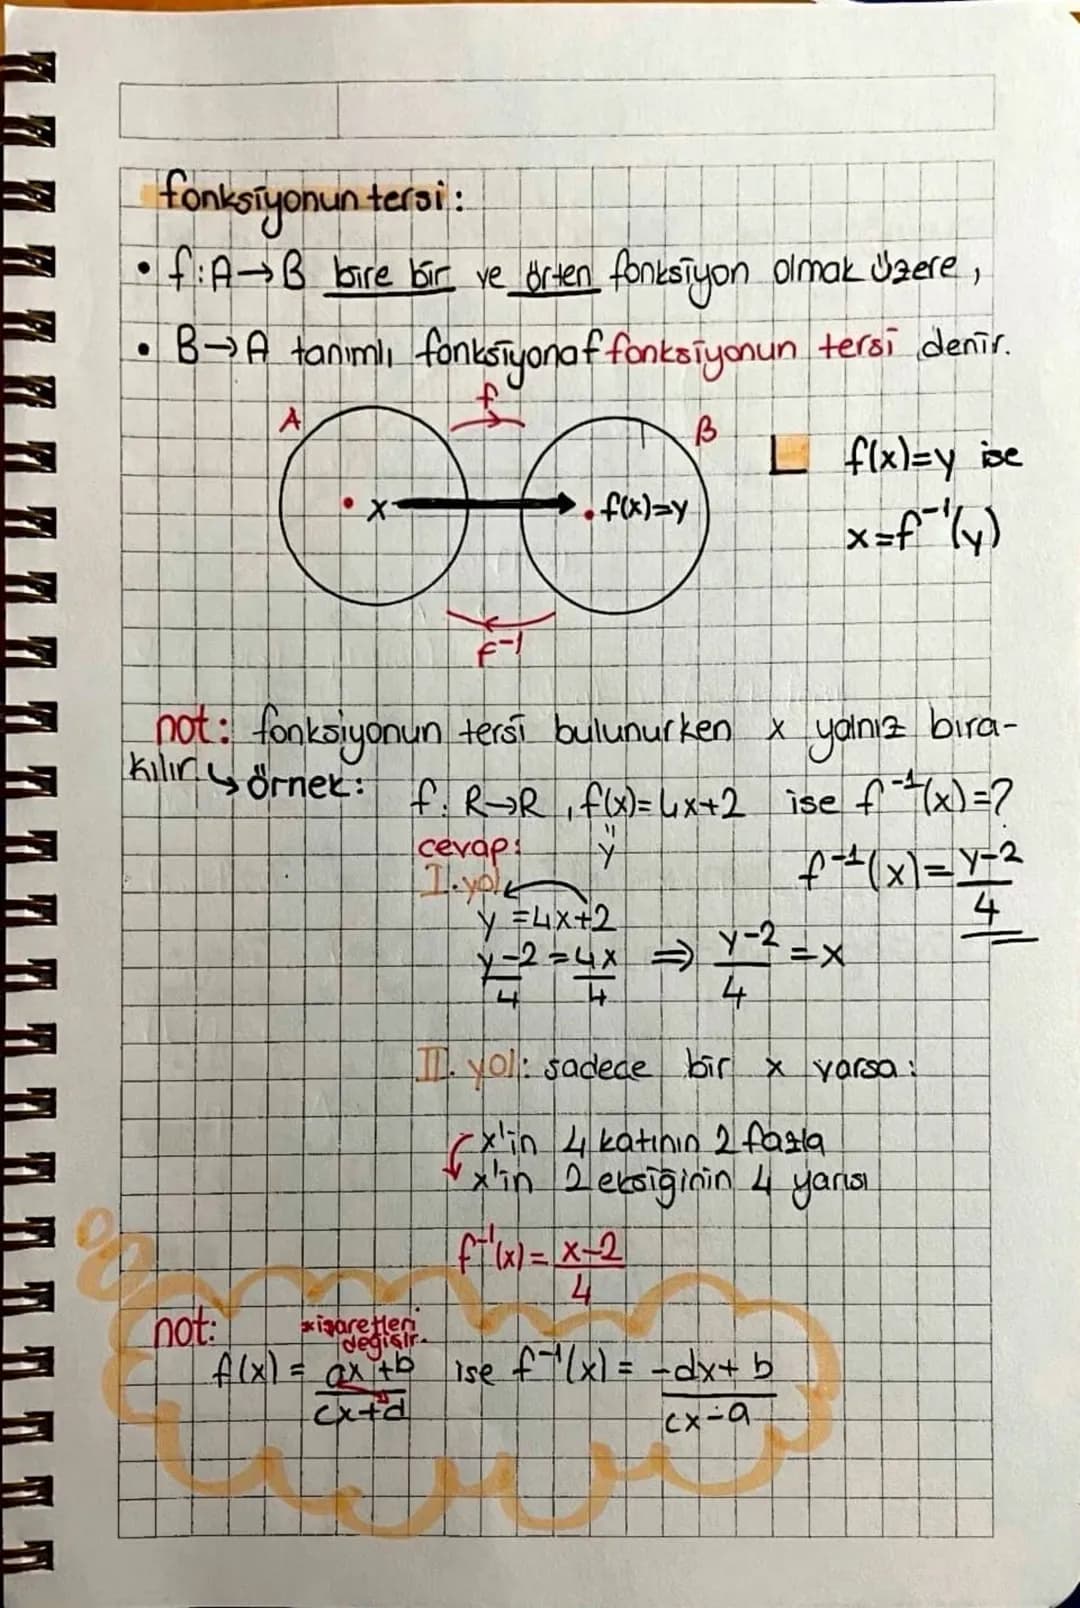 fonksiyonun tersi:
• f:A→B bire bir ve örten fonksiyon olmak üzere,
• B→A tanımlı fonksiyona f fonksiyonun tersi denir.
f
A
B
• x
• f(x)=y
f⁻¹
f(x)=y ise
x=f⁻¹(y)
not: fonksiyonun tersi bulunurken x yalnız bıra-
kılır. ↳ örnek: f: R→R, f(x)=4x+2 ise f⁻¹(x)=?
cevap: " y
I. yol
y=4x+2
y-2/4=4x/4 ⇒ y-2/4=x
f⁻¹(x)=y-2/4
II. yol: sadece bir x varsa:
x'in 4 katının 2 fazla
x'in 2 eksiğinin 4 yarısı
f⁻¹(x)=x-2/4
not: *işaretleri
değişir.
f(x)=ax+b/cx+d ise f⁻¹(x)=-dx+b/cx-a